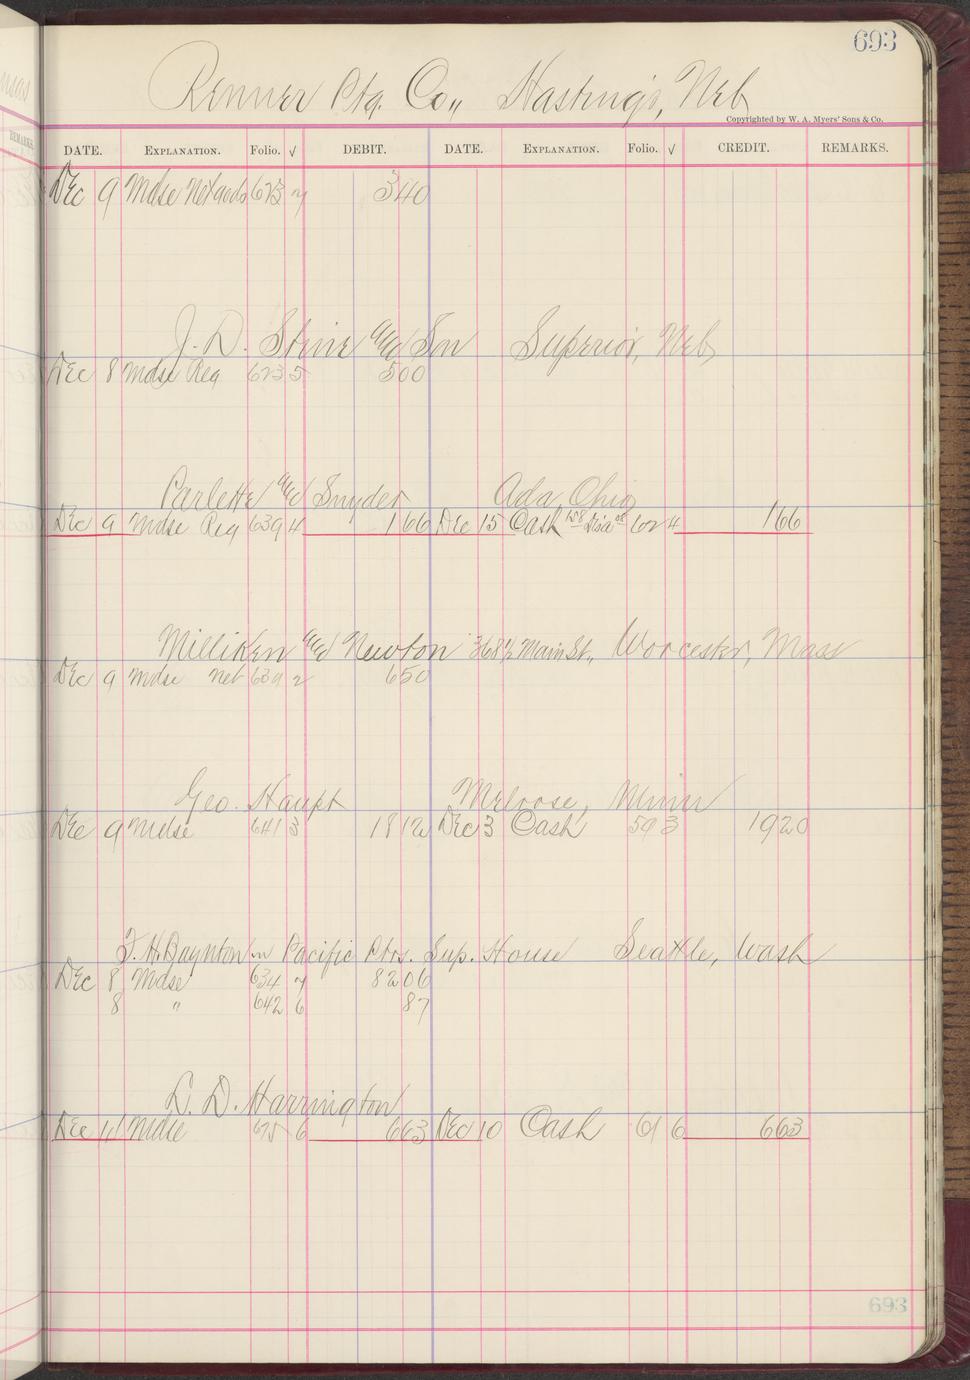 693
Renner Ptg. Co,, Hastings, Neb
Copyrighted by W. A. Myers' Sons & Co.
DATE. EXPLANATION. Folio. √ DEBIT. DATE. EXPLANATION. Folio. √ CREDIT. REMARKS.
Dec 9 Mdse Net 623 7 340
J. D. Stine and Son Superior, Neb
Dec 8 Mdse Reg 623 5 500
Parlette and Snyder Ada, Ohio
Dec 9 Mdse Reg 639 4 166 Dec 15 Cash 4 166
Milliken and Newton 368½ Main St., Worcester, Mass
Dec 9 Mdse net 639 2 650
Geo. Haupt Melrose, Minn
Dec 9 Mdse 641 3 1812 Dec 3 Cash 59 3 1920
F. H. Boynton in Pacific Ptrs. Sup. House Seattle, Wash
Dec 8 Mdse 634 7 8206
8 " 642 6 87
L. D. Harrington
Dec Mdse 6 663 Dec 10 Cash 61 6 663
693